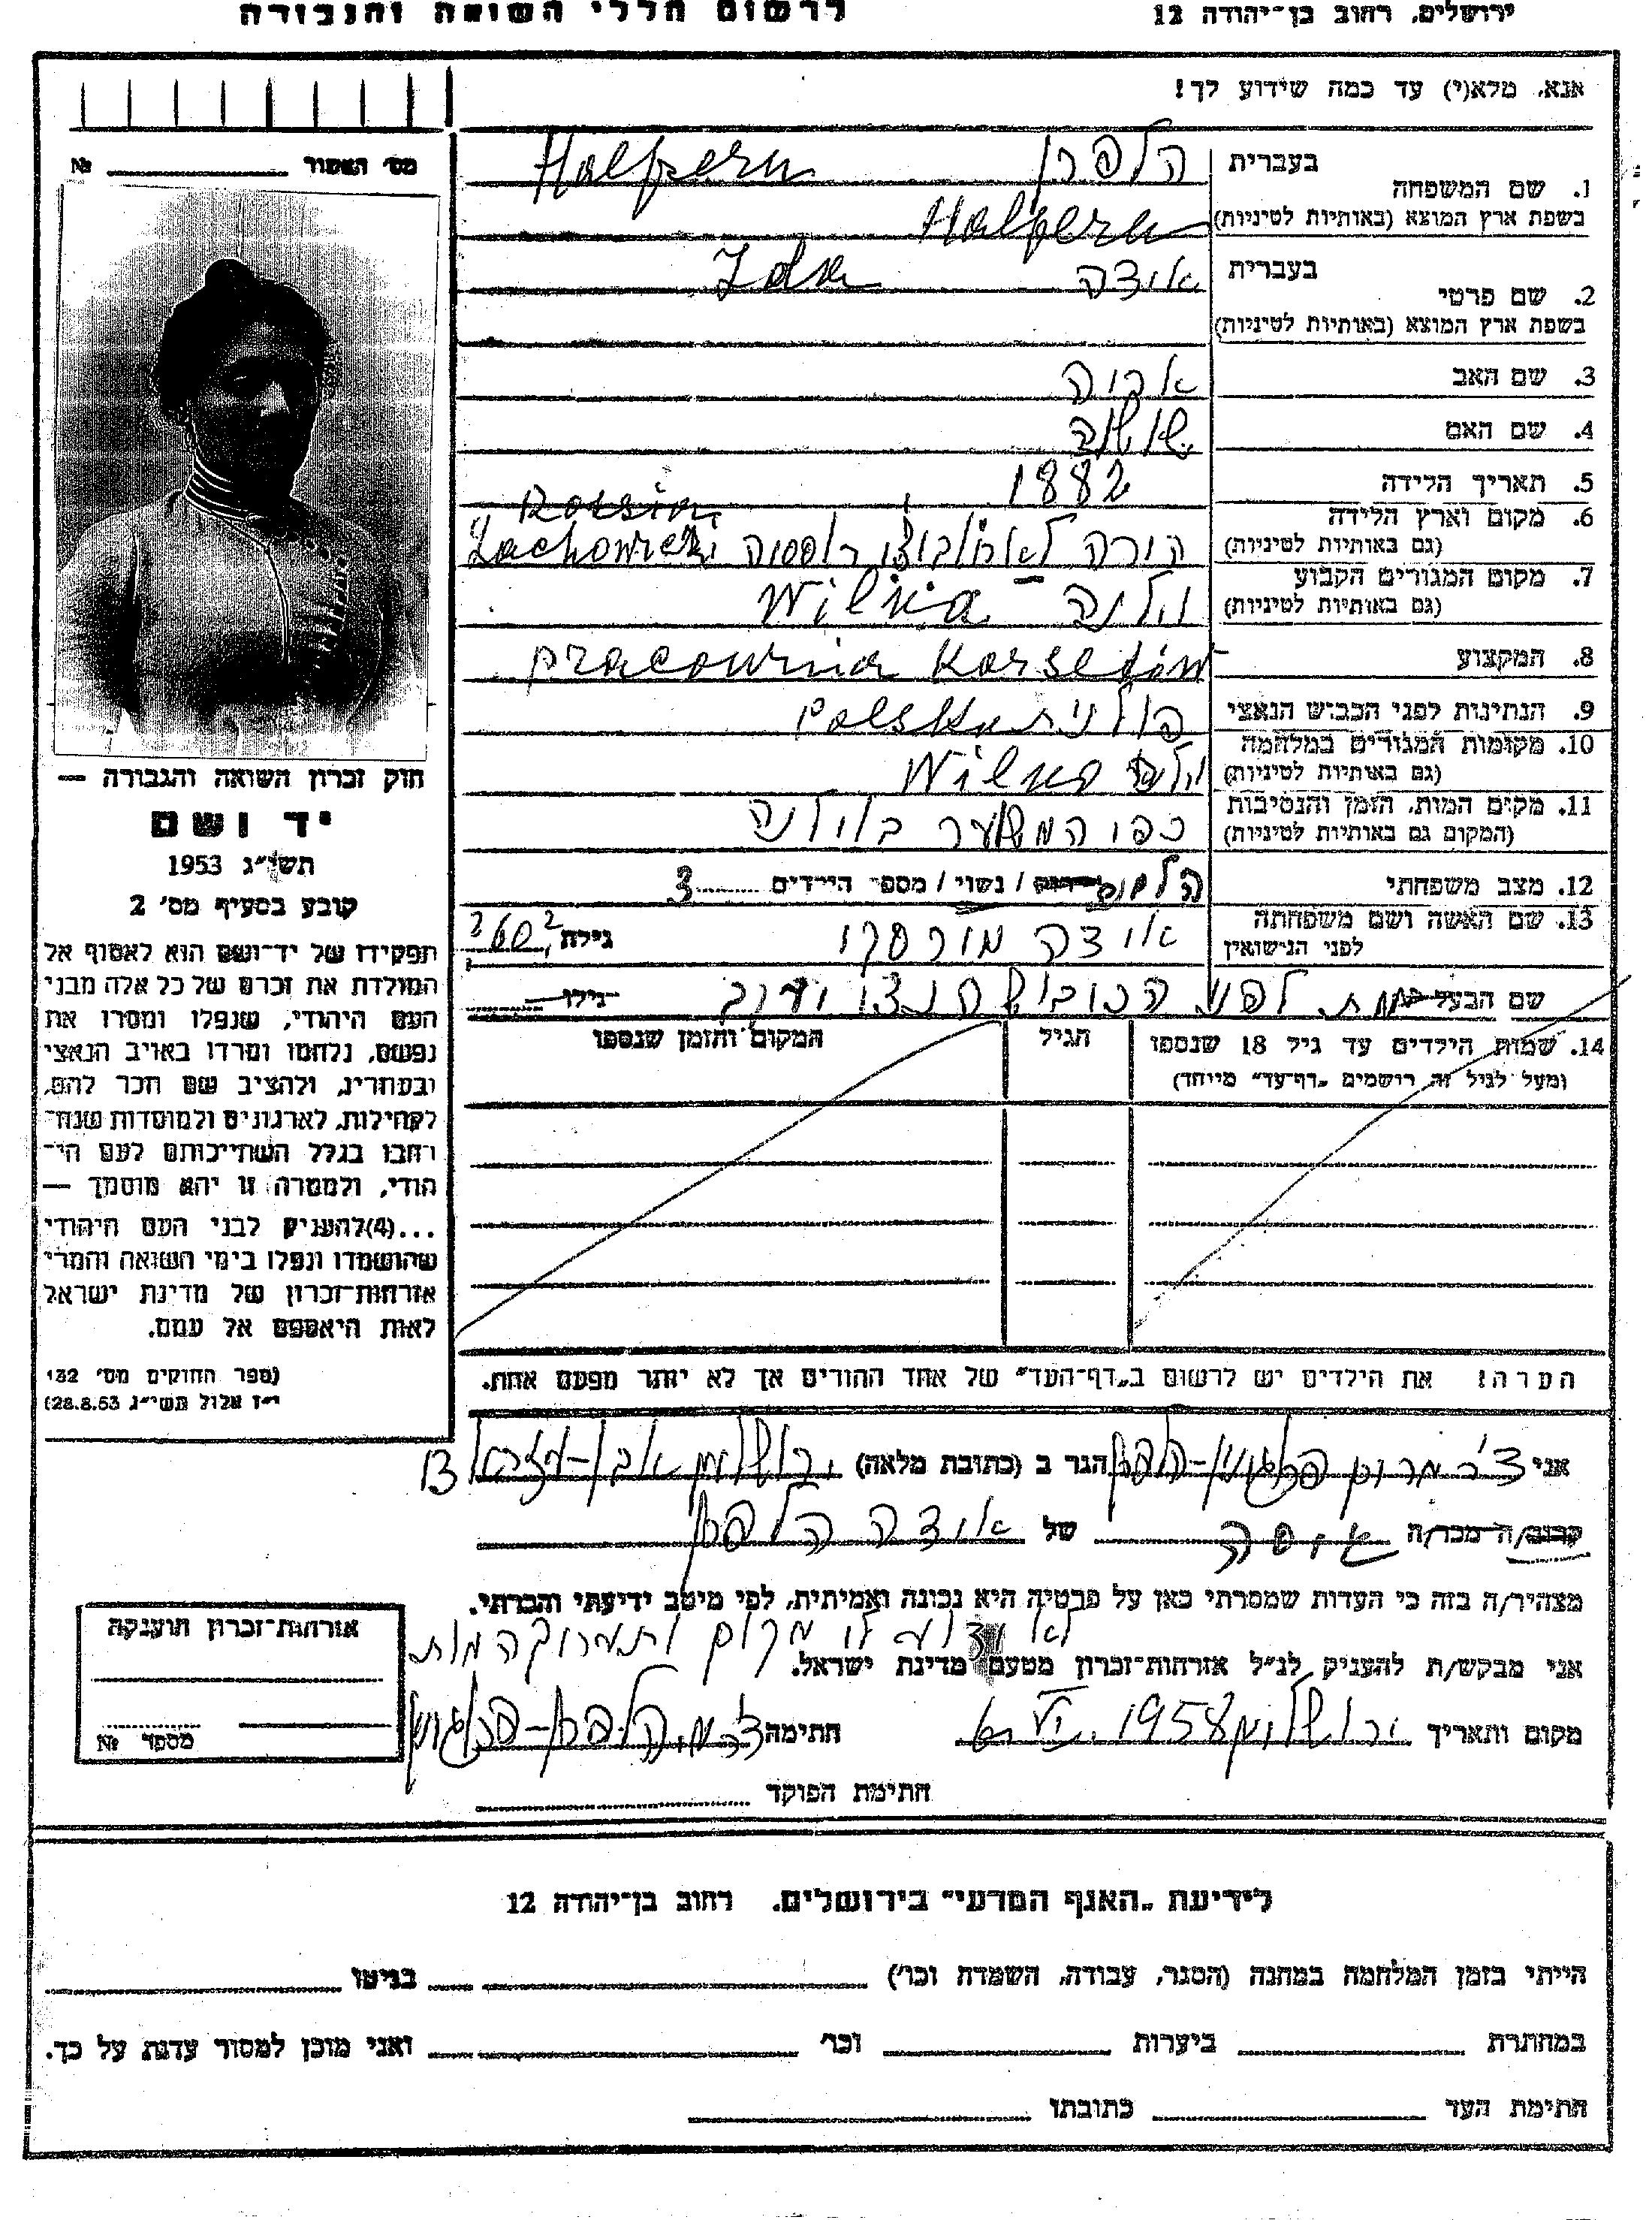 לרשום חללי השואה והגבורה
ירושלים, רחוב בן־יהודה 12
אנא, מלא(י) עד כמה שידוע לך!
מס׳ האשור № 
1. שם המשפחה
בעברית הלפרן Halpern
בשפת ארץ המוצא (באותיות לטיניות) Halpern
2. שם פרטי
בעברית אידה Ida
בשפת ארץ המוצא (באותיות לטיניות)
3. שם האב
4. שם האם
5. תאריך הלידה 1882
6. מקום וארץ הלידה
(גם באותיות לטיניות) רוסיה
7. מקום המגורים הקבוע וילנה – Wilna
(גם באותיות לטיניות)
8. המקצוע pracownia Korsetów
9. הנתינות לפני הכבוש הנאצי פולנית Polska
10. מקומות המגורים במלחמה Wilno
(גם באותיות לטיניות)
11. מקום המות, הזמן והנסיבות כפי המשוער בוילנה
(המקום גם באותיות לטיניות)
12. מצב משפחתי רווק / נשוי / מספר הילדים 3
13. שם האשה ושם משפחתה לפני הנישואין אידה גילה ?60?
שם הבעל מת לפני הכיבוש הנאצי גילו
14. שמות הילדים עד גיל 18 שנספו
(ומעל לגיל זה רושמים „דף־עד” מיוחד)
הגיל
המקום והזמן שנספו
הערה! את הילדים יש לרשום ב„דף־העד” של אחד ההורים אך לא יותר מפעם אחת.
חוק זכרון השואה והגבורה —
יד ושם
תשי״ג 1953
קובע בסעיף מס׳ 2
תפקידו של יד־ושם הוא לאסוף אל
המולדת את זכרם של כל אלה מבני
העם היהודי, שנפלו ומסרו את
נפשם, נלחמו ומרדו באויב הנאצי
ובעוזריו, ולהציב שם וזכר להם,
לקהילות, לארגונים ולמוסדות שנח־
רבו בגלל השתייכותם לעם הי־
הודי, ולמטרה זו יהא מוסמך —
...(4) להעניק לבני העם היהודי
שהושמדו ונפלו בימי השואה והמרי
אזרחות־זכרון של מדינת ישראל
לאות היאספם אל עמם.
(ספר החוקים מס׳ 132
י״ז אלול תשי״ג 28.8.53)
אני הלפרן הגר ב (כתובת מלאה) ירושלים 13
קרוב/ה מכר/ה של אידה הלפרן
מצהיר/ה בזה כי העדות שמסרתי כאן על פרטיה היא נכונה ואמיתית, לפי מיטב ידיעתי והכרתי.
לא ידוע לי מקום המות
אני מבקש/ת להעניק לנ״ל אזרחות־זכרון מטעם מדינת ישראל.
מקום ותאריך ירושלים 6.VI.1958 חתימה
חתימת הפוקד
אזרחות־זכרון הוענקה
מספר №
לידיעת „האגף המדעי” בירושלים, רחוב בן־יהודה 12
הייתי בזמן המלחמה במחנה (הסגר, עבודה, השמדה וכו׳) בגיטו
במחתרת ביערות וכו׳ ואני מוכן למסור עדות על כך.
חתימת העד כתובתו